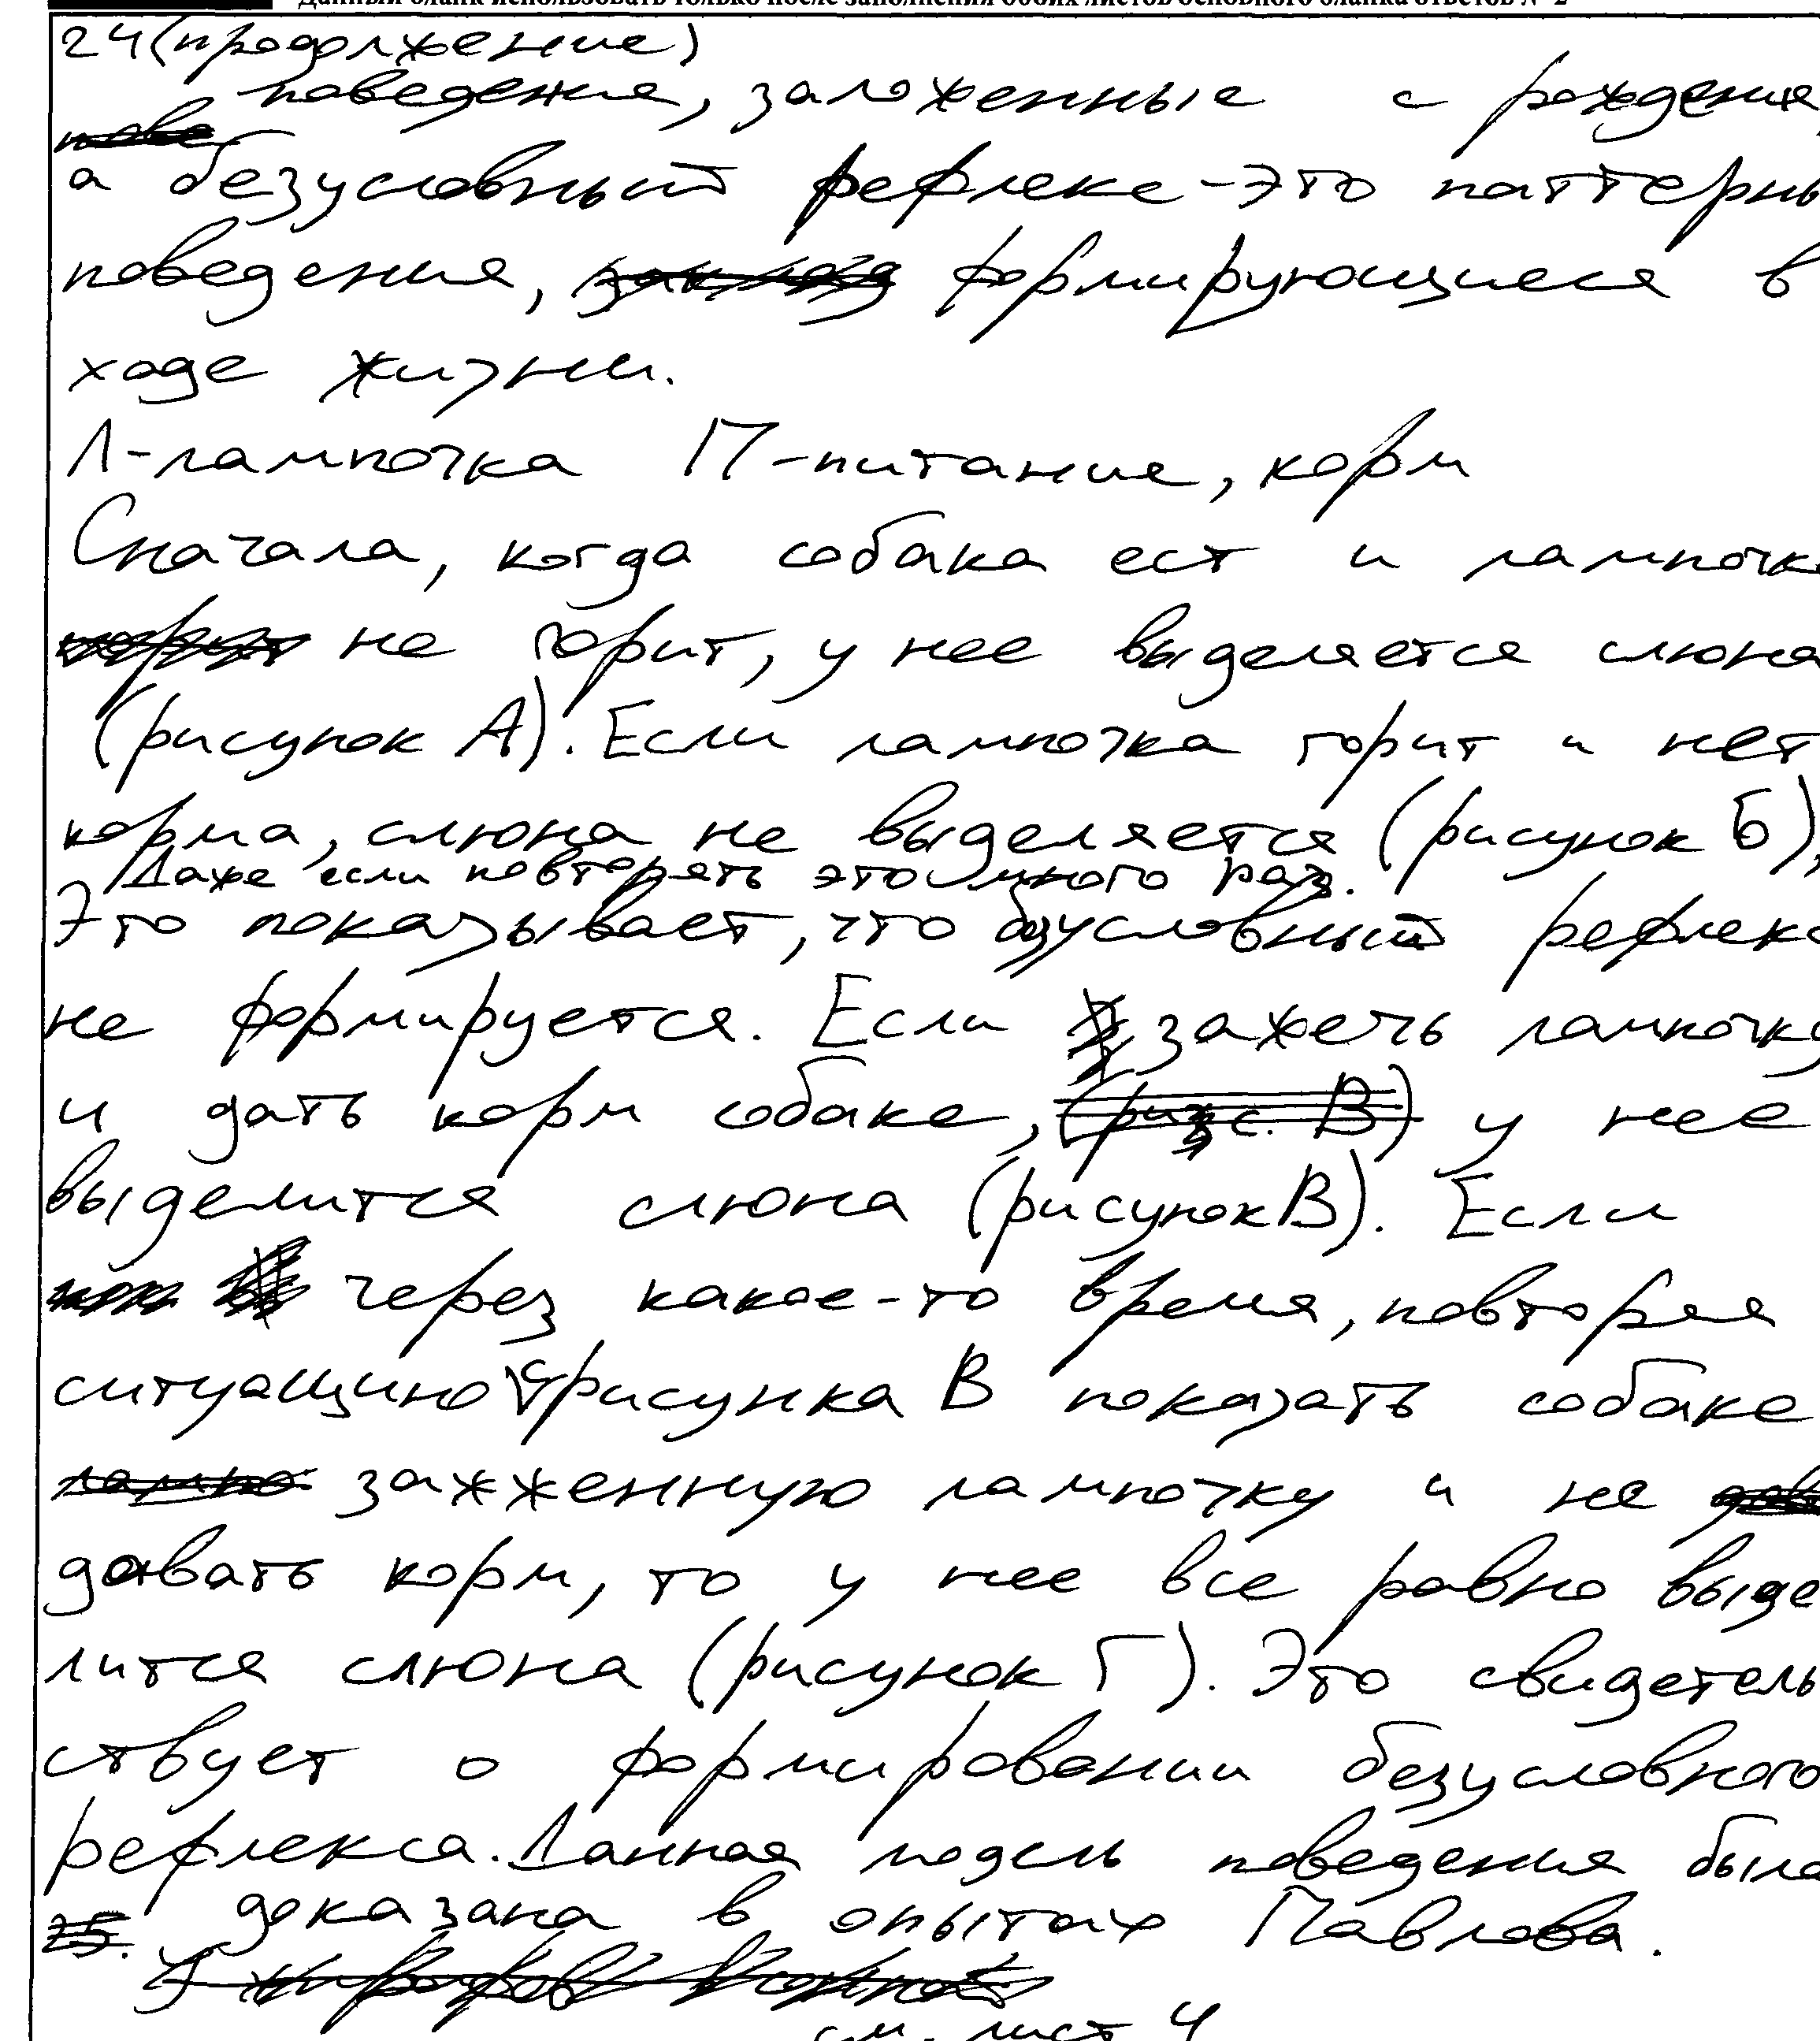 Данный бланк использовать только после заполнения обоих листов основного бланка ответов № 2
24(продолжение)
поведение, заложенные с рождения,
а безусловный рефлекс-это паттерны
поведения, формирующиеся в
ходе жизни.
Л-лампочка П-питание, корм
Сначала, когда собака ест и лампочка
не горит, у нее выделяется слюна
(рисунок А). Если лампочка горит и нет
корма, слюна не выделяется (рисунок Б),
Даже если повторять это много раз.
Это показывает, что бзусловный рефлекс
не формируется. Если зажечь лампочку
и дать корм собаке, у нее
выделится слюна (рисунок В). Если
через какое-то время, повторяя
ситуацию с рисунка В показать собаке
зажженную лампочку и не
давать корм, то у нее все равно выде
лится слюна (рисунок Г). Это свидетель
ствует о формировании безусловного
рефлекса. Данная модель поведения была
доказана в опытах Павлова.
см. лист 4